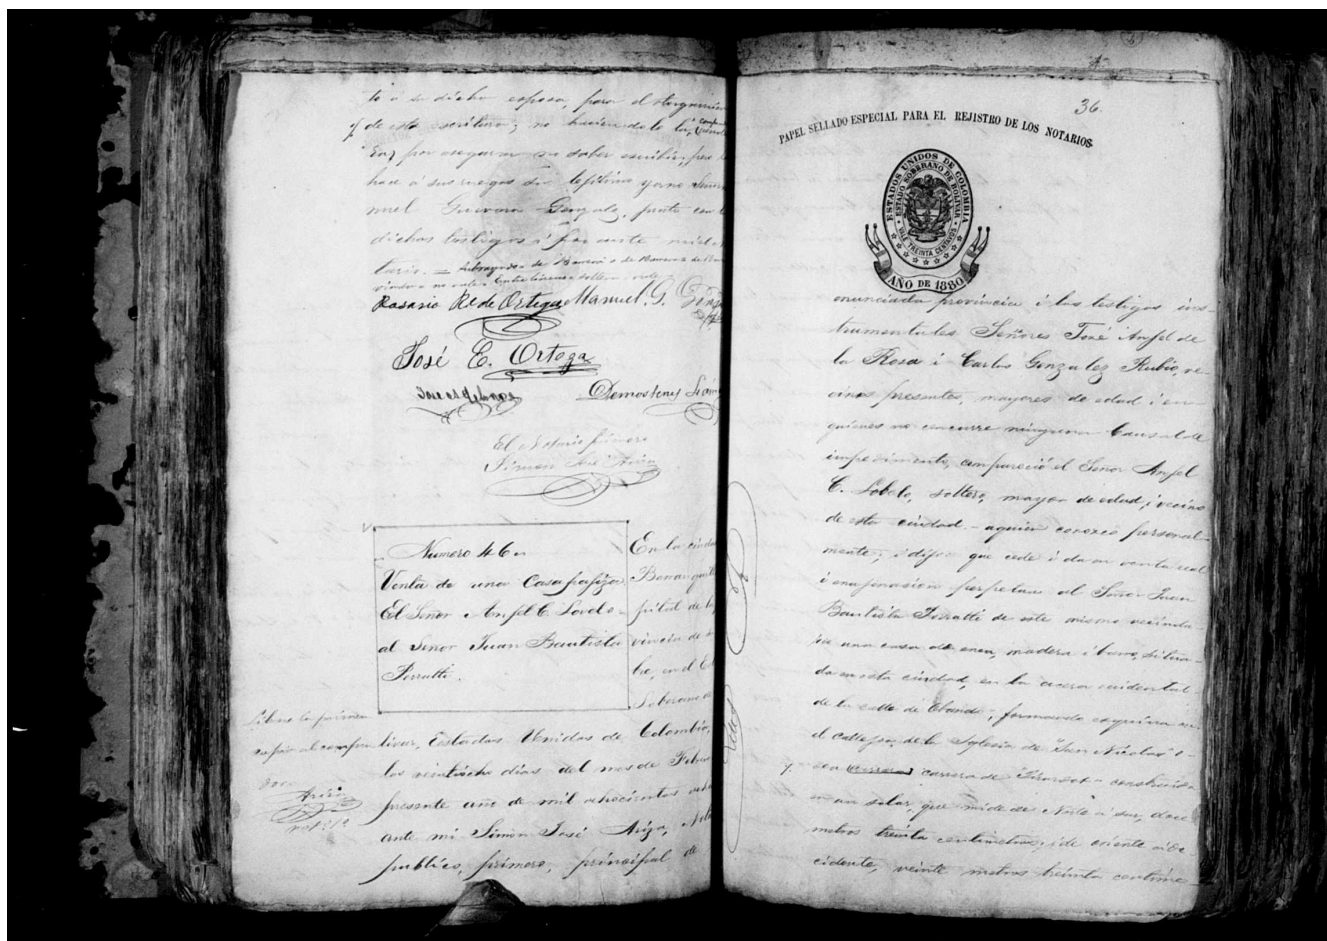 to á su dicha esposa, para el otorgamien
de esta escritura; no haciendolo la
por asegurar no saber escribir,
hace á sus ruegos su lejitimo yerno Señor
nuel Guevara Gonzalez, junto con
dichos testigos i por ante mi el
tario. =
Rosario R. de Ortega Manuel G.
José E. Ortega
Demostenes
El Notario primero
Simon José Ariza
Numero 46
Venta de una Casa pajiza
El Señor Anjel C. Lovelo
al Señor Juan Bautista
En la ciudad
Barranquilla
pital de la
vincia de
bre, en el E
Soberano de
livar, Estados Unidos de Colombia,
los veintiocho dias del mes de Febre
presente año de mil ochocientos och
ante mi Simon José Ariza, Nota
publico, primero, principal de
Libré la primera
copia al compra
dor.
Ariza
36.
PAPEL SELLADO ESPECIAL PARA EL REJISTRO DE LOS NOTARIOS.
ESTADOS UNIDOS DE COLOMBIA
ESTADO SOBERANO DE BOLIVAR
VALE TREINTA CENTAVOS
AÑO DE 1880
enunciada provincia i los testigos ins-
trumentales Señores José Anjel de
la Rosa i Carlos Gonzalez Rubio, ve-
cinos presentes, mayores de edad i en
quienes no concurre ninguna causal de
impedimento, compareció el Señor Anjel
C. Lobelo, soltero, mayor de edad, i vecino
de esta ciudad - a quien conozco personal-
mente; i dijo: que cede i da en venta real
i enajenasion perpetua al Señor Juan
Bautista de este mismo vecinda-
rio una casa de enea, madera i barro, situa-
da en esta ciudad, en la acera occidental
de la calle de Obando; formando esquina con
el callejon de la Iglesia de "San Nicolas" o
sea carrera de construida
en un solar, que mide de Norte a sur, doce
metros treinta centimetros; i de oriente a oc
cidente, veinte metros treinta centime-